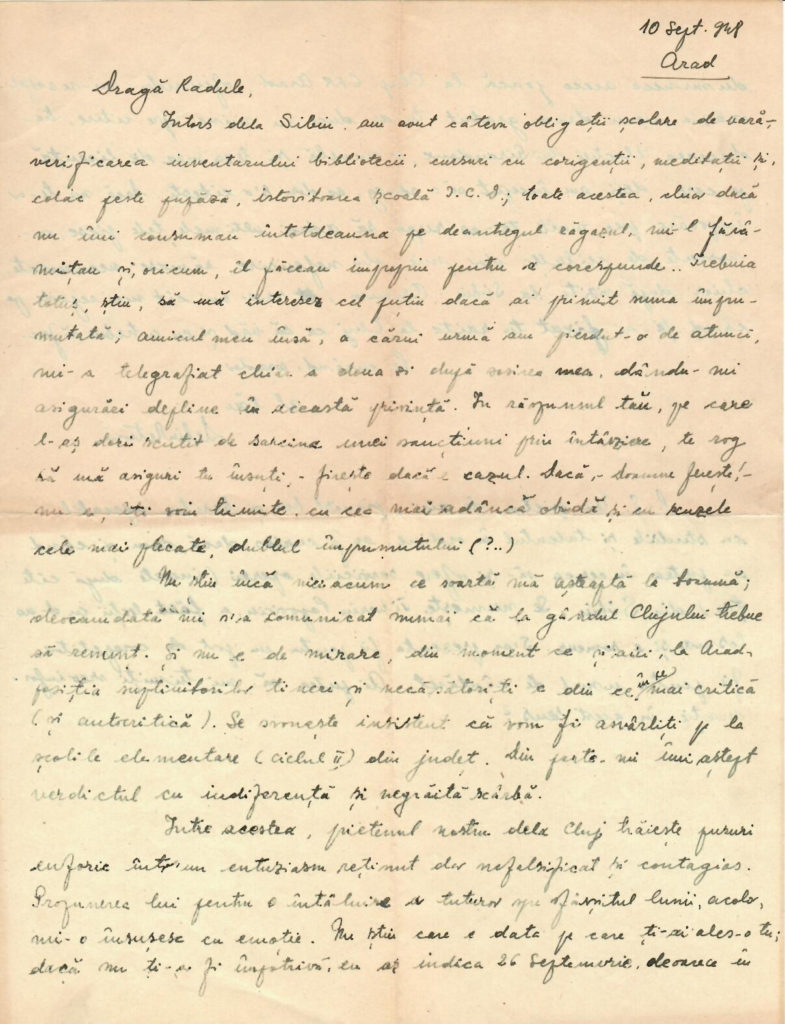 10 Sept. 948
Arad
Dragă Radule,
Intors dela Sibiu, am avut câteva obligații școlare de vară,-
verificarea inventarului bibliotecii, cursuri cu corigenții, meditații și,
colac peste pupăză, istovitoarea școală I.C.D.; toate acestea, chiar dacă
nu îmi consumau întotdeauna pe deantregul răgazul, mi-l fărâ-
mițau și, oricum, îl făceau impropriu pentru a corespunde.. Trebuia
totuș, știu, să mă interesez cel puțin dacă ai primit suma împru-
mutată; amicul meu însă, a cărui urmă am pierdut-o de atunci,
mi-a telegrafiat chiar a doua zi după sosirea mea, dându-mi
asigurări depline în această privință. In răspunsul tău, pe care
l-aș dori scutit de sarcina unei sancțiuni prin întârziere, te rog
să mă asiguri tu însuți,- firește dacă e cazul. Dacă,- Doamne ferește!-
nu e, îți voiu trimite, cu cea mai adâncă obidă și cu scuzele
cele mai plecate, dublul împrumutului (?..)
Nu știu încă nici acum ce soartă mă așteaptă la toamnă;
deocamdată mi s'a comunicat numai că la gândul Clujului trebue
să renunț. Și nu e de mirare, din moment ce și aici, la Arad,
poziția suplinitorilor tineri și necăsătoriți e din ce în ce mai critică
(și autocritică). Se svonește insistent că vom fi asvârliți p la
școlile elementare (ciclul II) din județ. Din parte-mi îmi aștept
verdictul cu indiferență și negrăită scârbă.
Intre acestea, prietenul nostru dela Cluj trăiește pururi
euforic într'un entuziasm reținut dar nefalsificat și contagios.
Propunerea lui pentru o întâlnire a tuturor spre sfârșitul lunii, acolo,
mi-o însușesc cu emoție. Nu știu care e data p care ți-ai ales-o tu;
dacă nu ți-a fi împotrivă, eu aș indica 26 Septemvrie, deoarece în